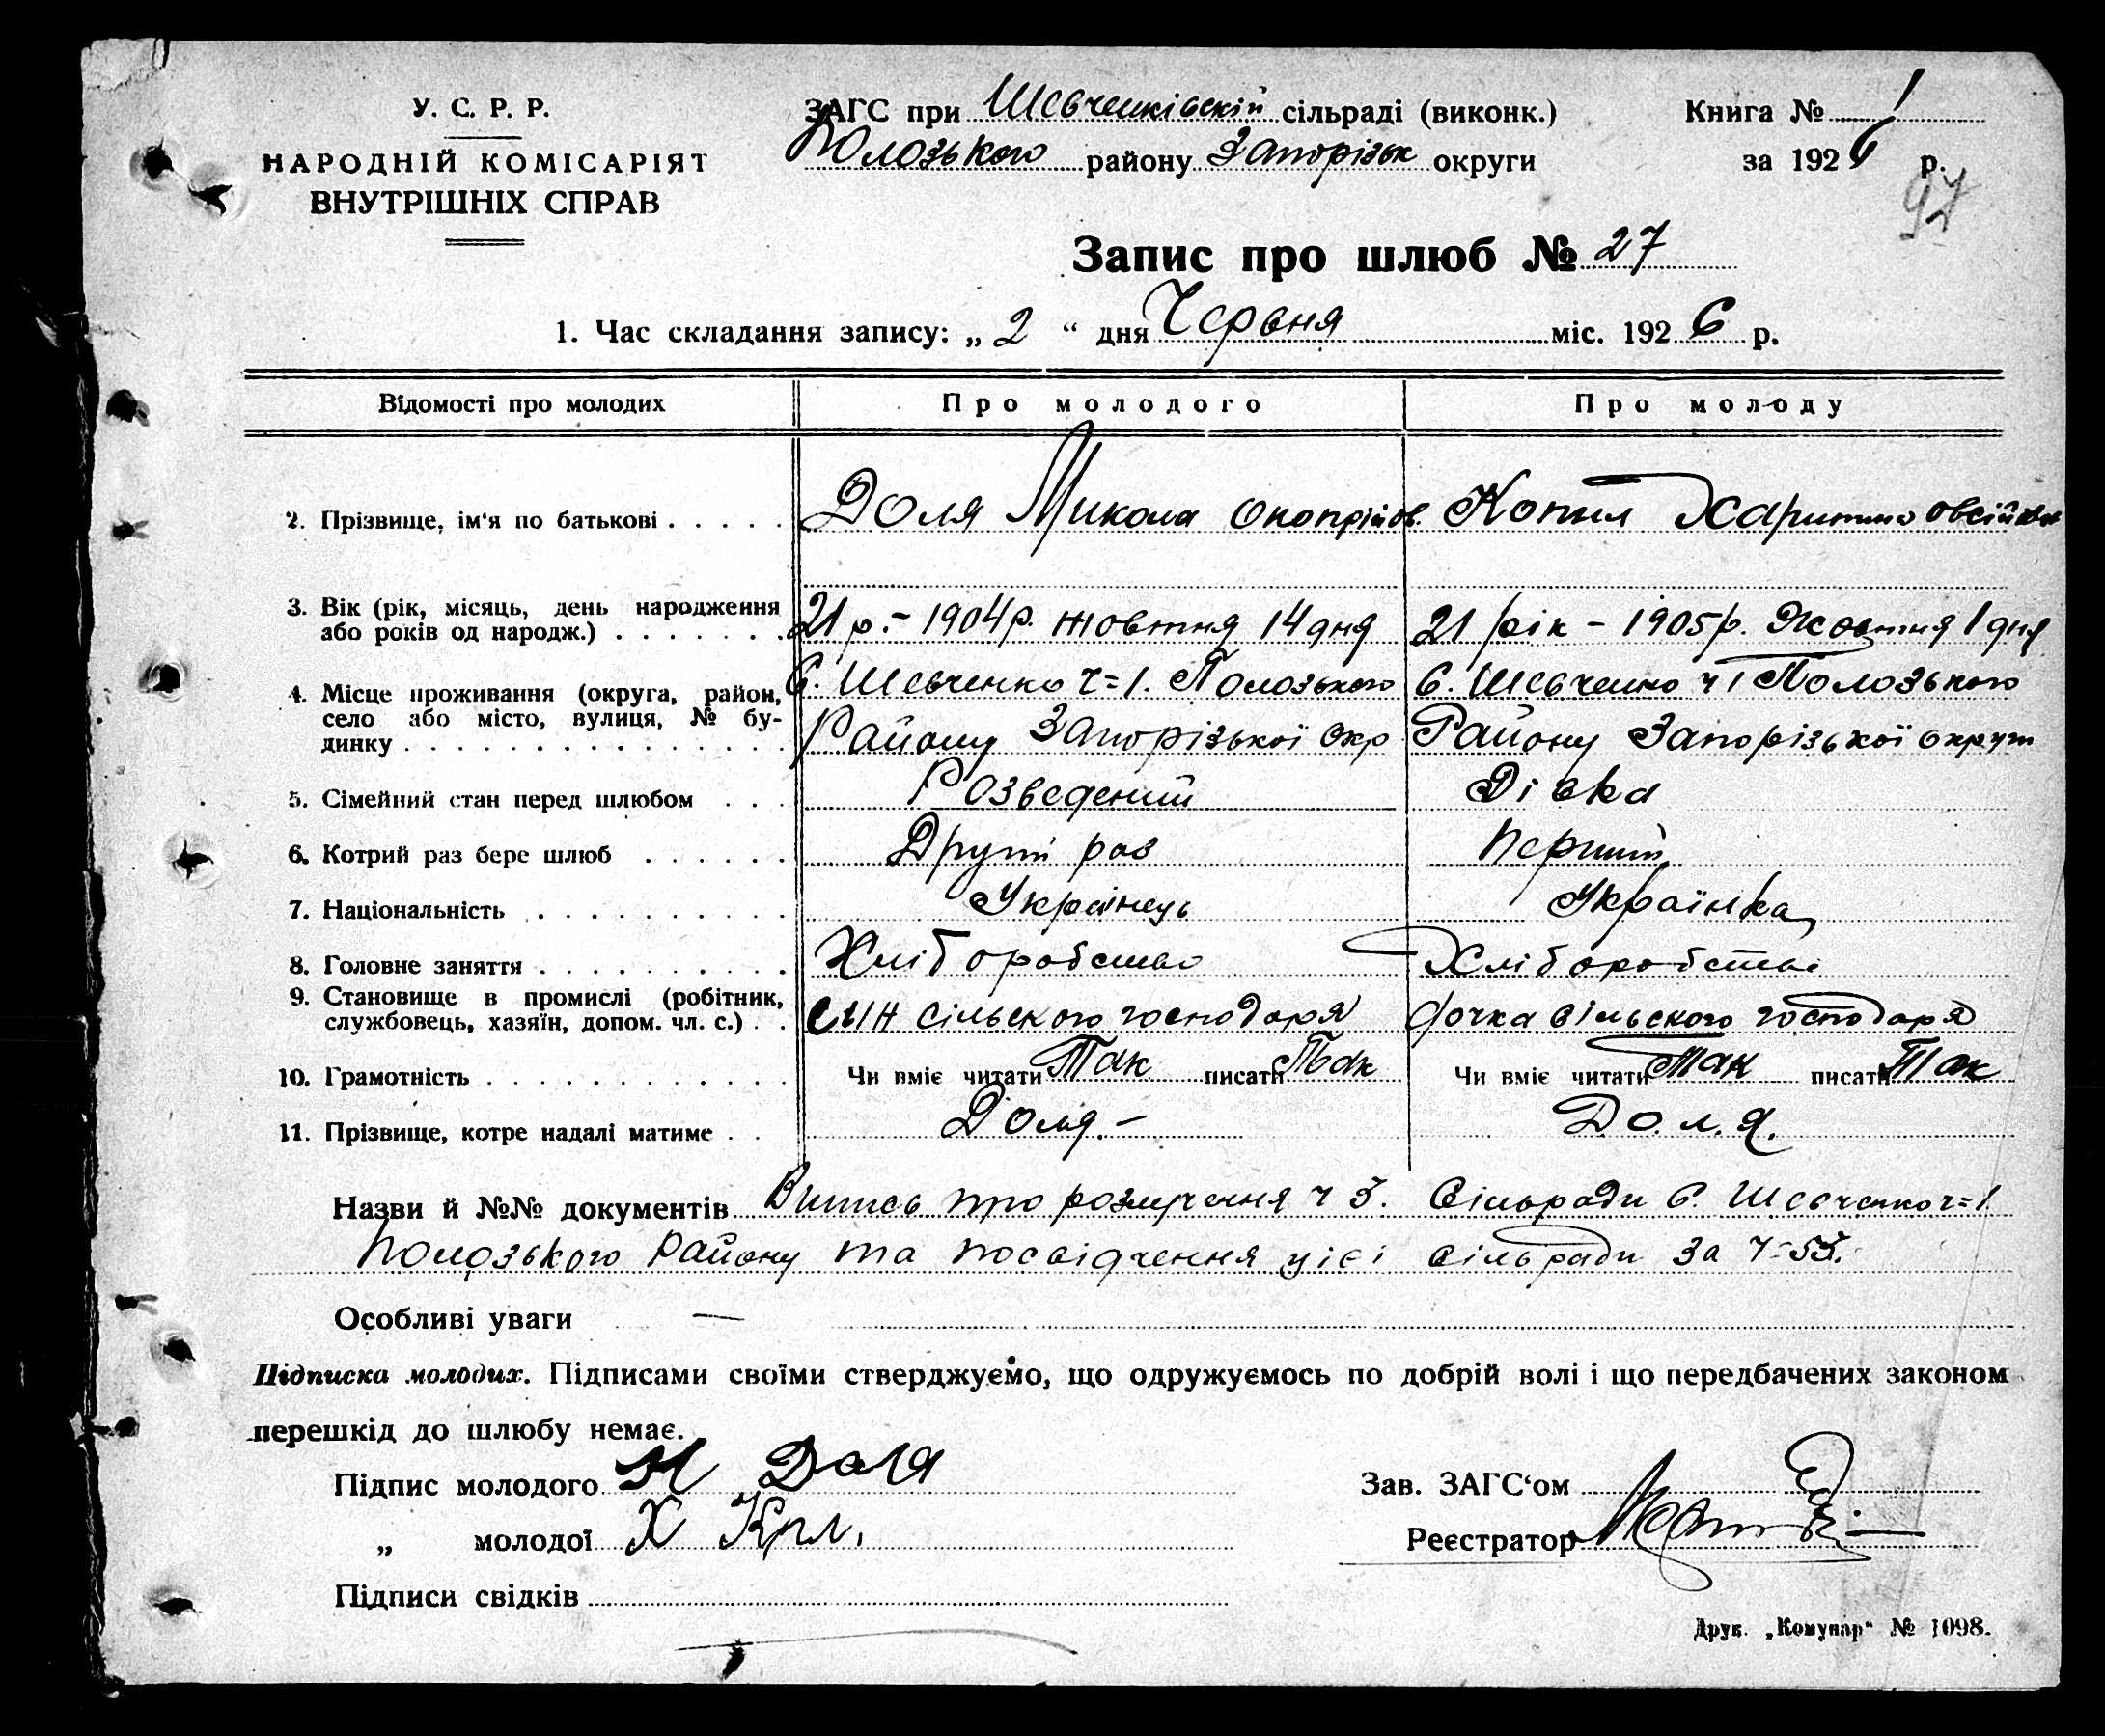 У. С. Р. Р.
НАРОДНІЙ КОМІСАРІЯТ
ВНУТРІШНІХ СПРАВ
ЗАГС при Шевченківскій сільраді (виконк.)
Полозького району Запорізьк округи
Книга № 1
за 1926 р.
97
Запис про шлюб № 27
1. Час складання запису: „ 2 “ дня Червня міс. 1926 р.
Відомості про молодих Про молодого Про молоду
2. Прізвище, ім‘я по батькові . . . . . Доля Микола Копил Харитина Овсійовн
3. Вік (рік, місяць, день народження 21 р. - 1904 р. жовтня 14 дня 21 рік - 1905 р. Жовтня 1 дня
або років од народж.) . . . . . . .
4. Місце проживання (округа, район, С. Шевченко ч=1. Полозького С. Шевченко ч 1 Полозького
село або місто, вулиця, № бу- Району Запорізької Окр Району Запорізької округи
динку . . . . . . . . . . . . . . . .
5. Сімейний стан перед шлюбом . . . Розведений Дівка
6. Котрий раз бере шлюб . . . . . . Другий раз Перший
7. Національність . . . . . . . . . . Українець Українка
8. Головне заняття . . . . . . . . . . Хліборобство Хліборобство
9. Становище в промислі (робітник, син сільского господаря дочка сільского господаря
службовець, хазяїн, допом. чл. с.) . .
10. Грамотність . . . . . . . . . . . . Чи вміє читати Так писати Так Чи вміє читати Так писати Так
11. Прізвище, котре надалі матиме . . Доля. - Доля.
Назви й №№ документів Випись про розлучення ч 5. Сільради С. Шевченко ч=1
Полозького Району та посвідчення цієі Сільради за ч=55.
Особливі уваги —
Підписка молодих. Підписами своїми стверджуємо, що одружуємось по добрій волі і що передбачених законом
перешкід до шлюбу немає.
Підпис молодого Н Доля
„ молодої Х
Зав. ЗАГС‘ом
Реєстратор
Підписи свідків
Друк. „Комунар“ № 1098.